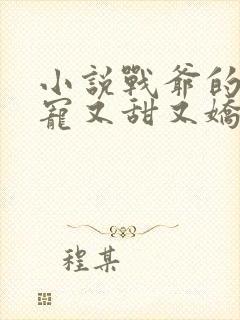 小說戰爺的
寵又甜又嬌
程某